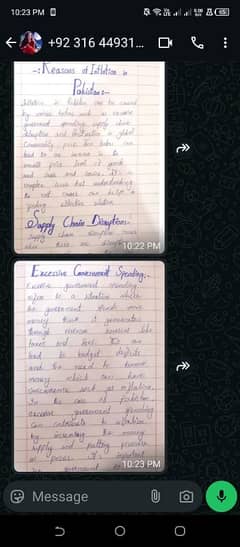 10:23 PM
+92 316 44931...
-: Reasons of Inflation in
Pakistan:-
Inflation in Pakistan can be caused
by various factors such as excessive
government spending, supply chain
disruption and fluctuation in global
Commodity price. These factors can
lead to an increase in the
overall price level of goods
and services. It's a
complex issue that understanding
the root causes can help in
finding effective solution.
Supply Chain Disruption:-
Supply chain disruption occurs
when there are
10:22 PM
Excessive Government Spending:-
Excessive government spending
refers to a situation where
the government spends more
money than it generates
through revenue sources like
taxes and fees. It can
lead to budget deficits
and the need to borrow
money which can have
consequences such as inflation.
In the case of Pakistan
excessive government spending
can contribute to inflation
by increasing the money
supply and putting pressure
on prices. It's important
government
10:23 PM
Message